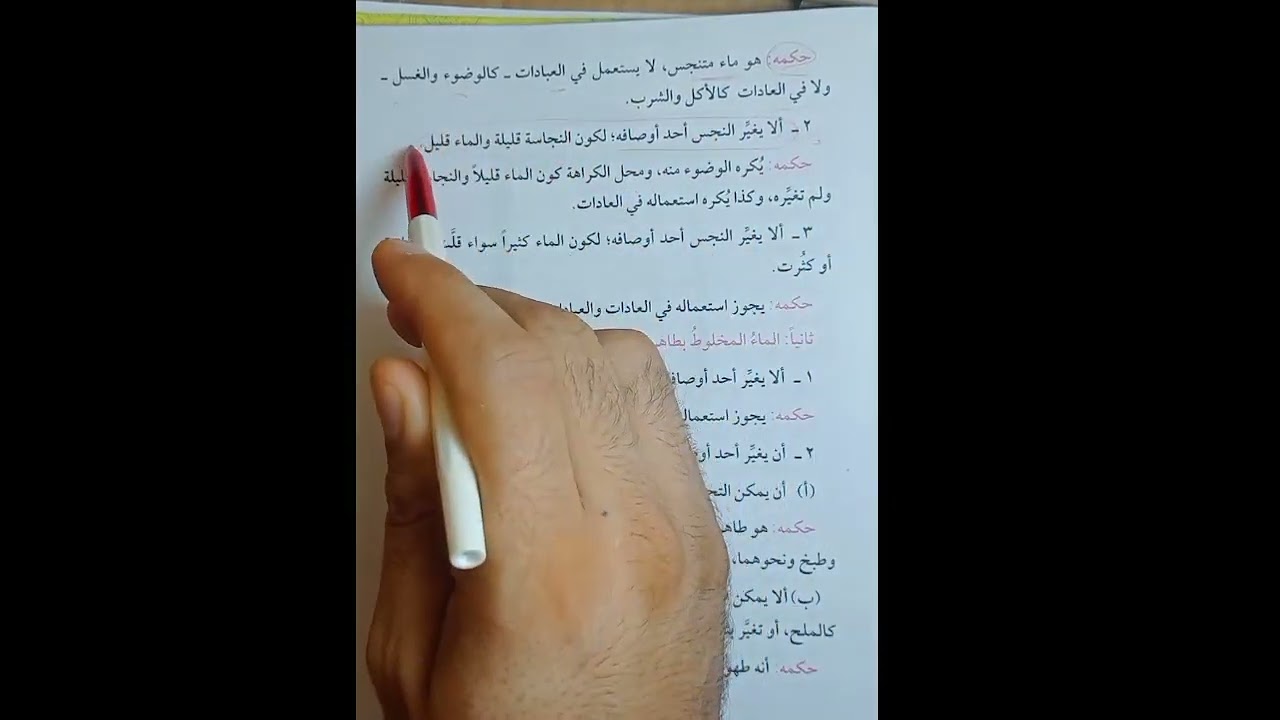 حكمه: هو ماء متنجس، لا يستعمل في العبادات ـ كالوضوء والغسل ـ
ولا في العادات كالأكل والشرب.
٢ ـ ألا يغيِّر النجس أحد أوصافه؛ لكون النجاسة قليلة والماء قليل.
حكمه: يُكره الوضوء منه، ومحل الكراهة كون الماء قليلاً
ولم تغيِّره، وكذا يُكره استعماله في العادات.
٣ ـ ألا يغيِّر النجس أحد أوصافه؛ لكون الماء كثيراً سواء قلَّت
أو كثُرت.
حكمه: يجوز استعماله في العادات
ثانياً: الماءُ المخلوطُ
١ ـ ألا يغيِّر أحد
حكمه: يجوز
٢ ـ أن يغيِّر أحد
(أ) أن يمكن
حكمه: هو
وطبخ ونحوهما،
(ب) ألا يمكن
كالملح، أو تغيَّر
حكمه: أنه